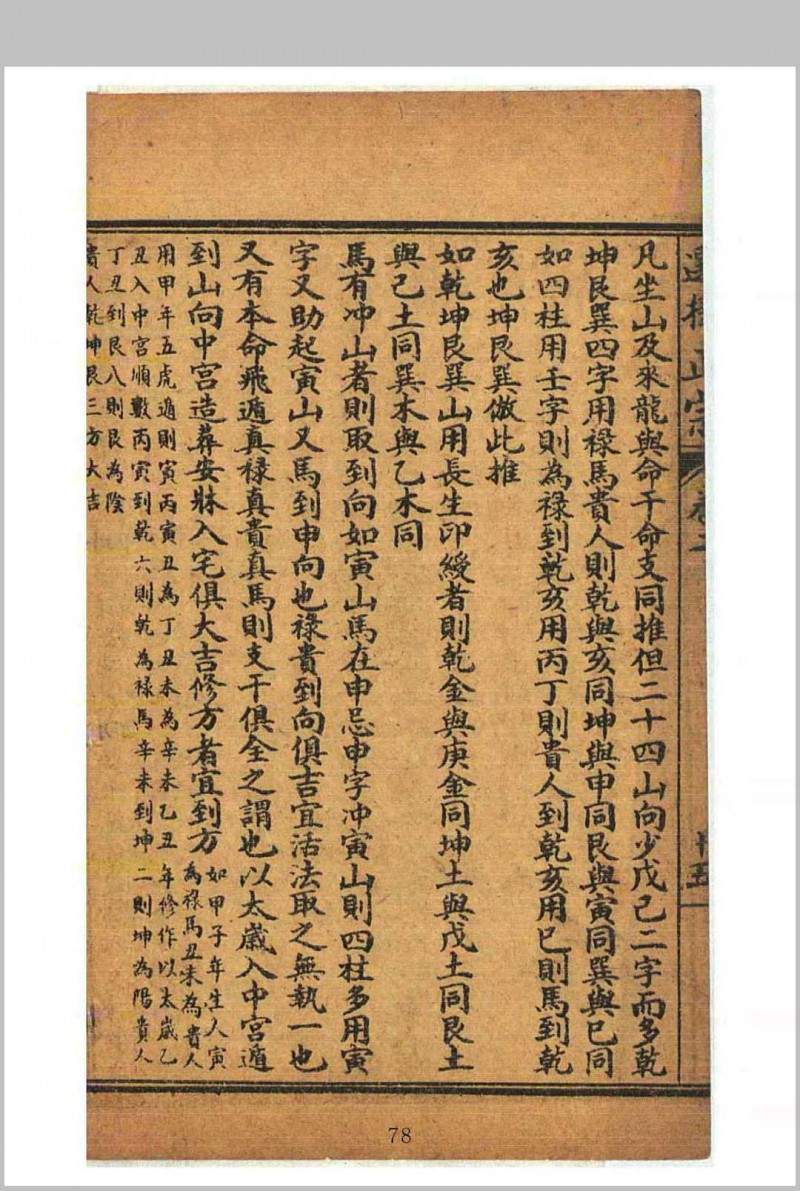 選擇正宗 卷二 十五
凡坐山及來龍與命干命支同推但二十四山向少戊己二字而多乾
坤艮巽四字用祿馬貴人則乾與亥同坤與申同艮與寅同巽與巳同
如四柱用壬字則為祿到乾亥用丙丁則貴人到乾亥用巳則馬到乾
亥也坤艮巽倣此推
如乾坤艮巽山用長生印綬者則乾金與庚金同坤土與戊土同艮土
與己土同巽木與乙木同
馬有冲山者則取到向如寅山馬在申忌申字冲寅山則四柱多用寅
字又助起寅山又馬到申向也祿貴到向俱吉宜活法取之無執一也
又有本命飛遁真祿真貴真馬則支干俱全之謂也以太歲入中宮遁
到山向中宮造葬安牀入宅俱大吉修方者宜到方
如甲子年生人寅
為祿馬丑未為貴人
用甲年五虎遁則寅丙寅丑為丁丑未為辛未乙丑年修作以太歲乙
丑入中宮順數丙寅到乾六則乾為祿馬辛未到坤二則坤為陽貴人
丁丑到艮八則艮為陰
貴人乾坤艮三方大吉
78